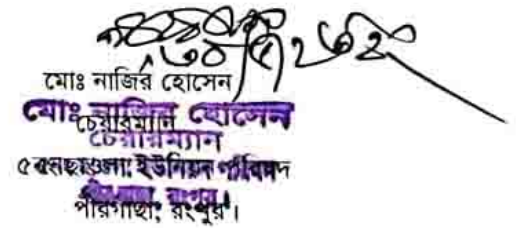 মোঃ নাজির হোসেন
মোঃ নাজির হোসেন
চেয়ারম্যান
চেয়ারম্যান
৫নং ছাওলা ইউনিয়ন পরিষদ
পীরগাছা, রংপুর।
পীরগাছা, রংপুর।